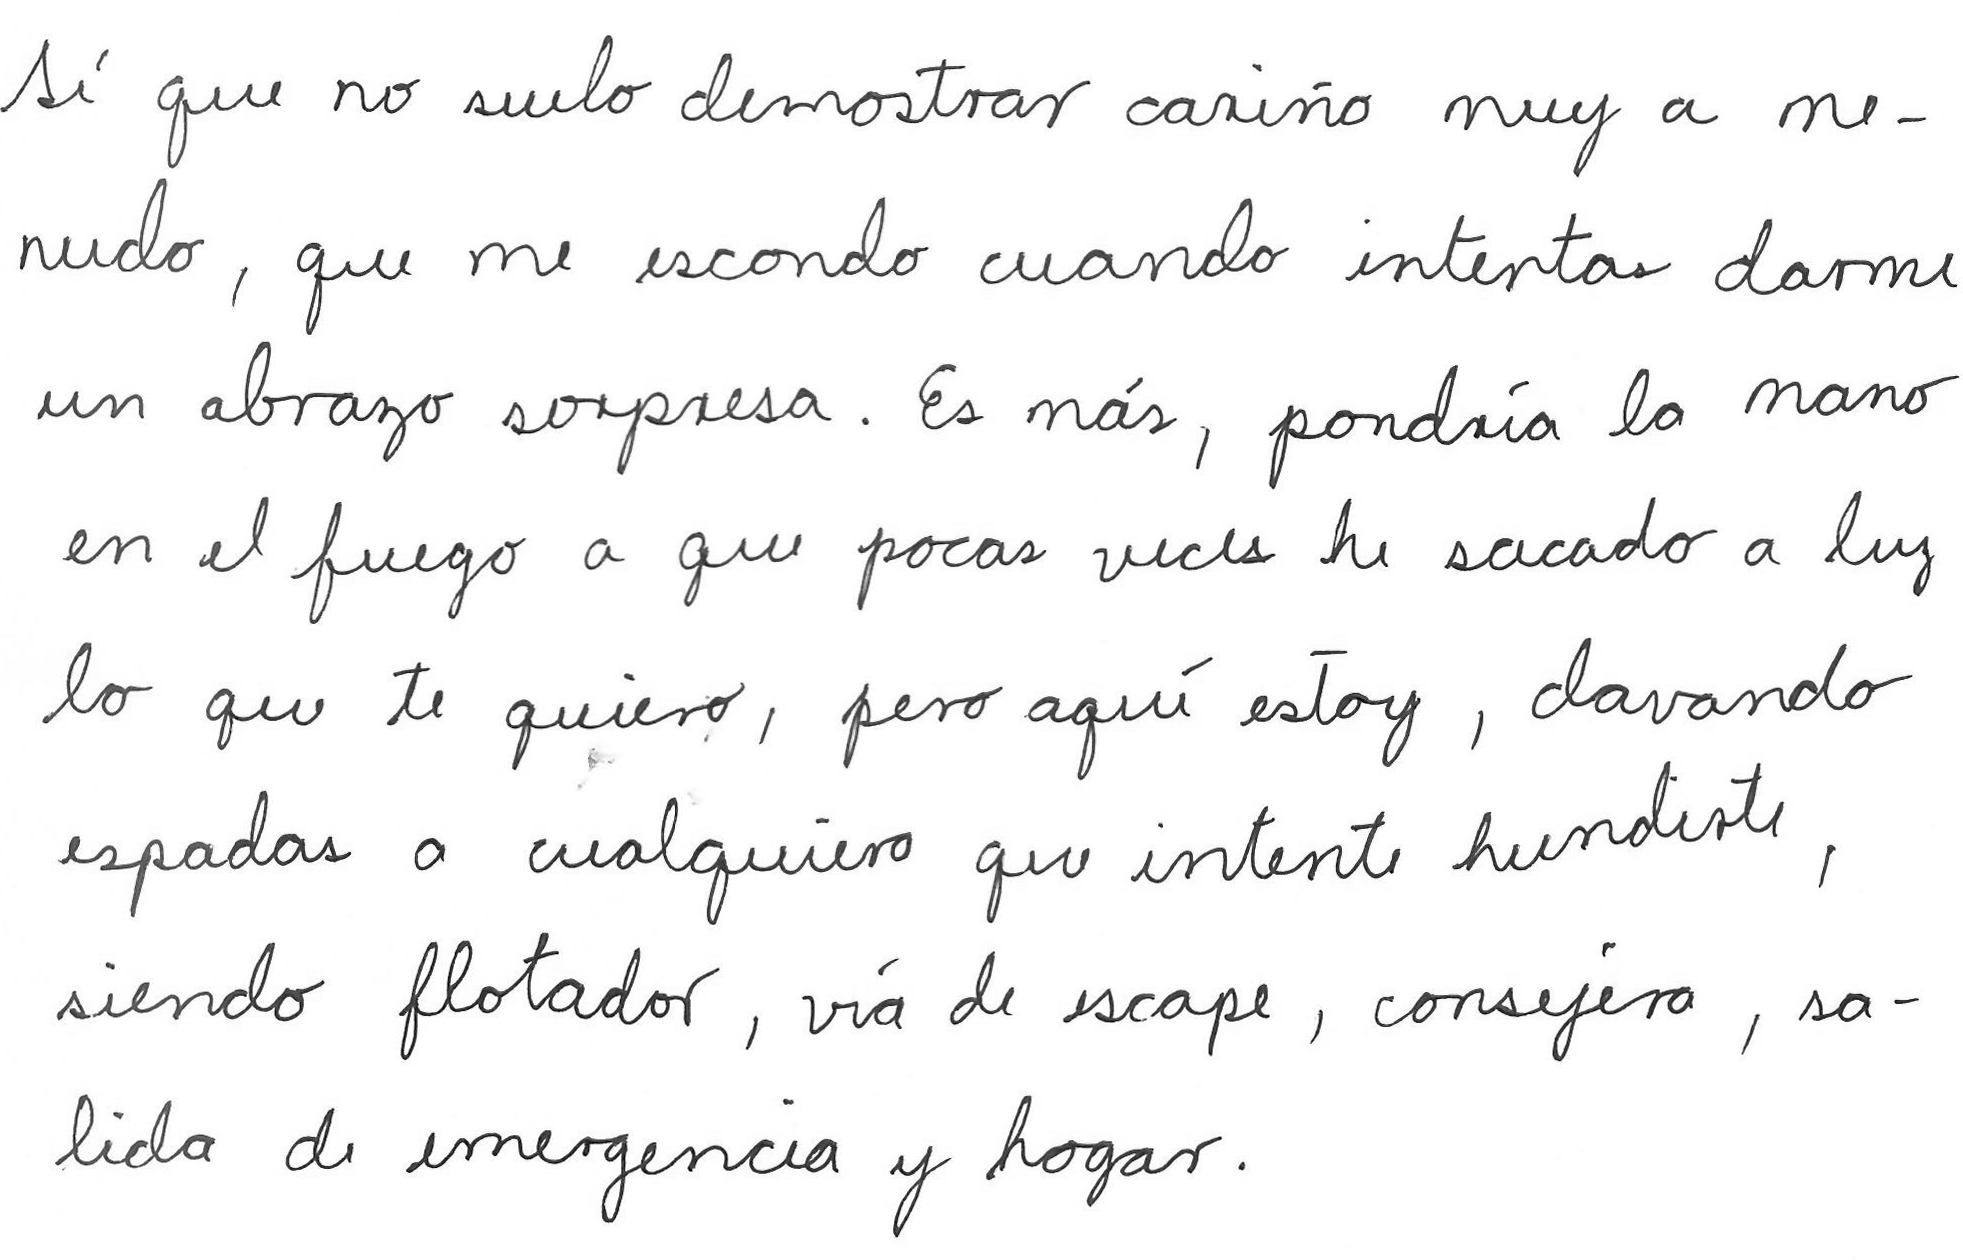 Sí que no suelo demostrar cariño muy a me-
nudo, que me escondo cuando intentas darme
un abrazo sorpresa. Es más, pondría la mano
en el fuego a que pocas veces he sacado a luz
lo que te quiero, pero aquí estoy, clavando
espadas a cualquiera que intente hundirte,
siendo flotador, vía de escape, consejera, sa-
lida de emergencia y hogar.